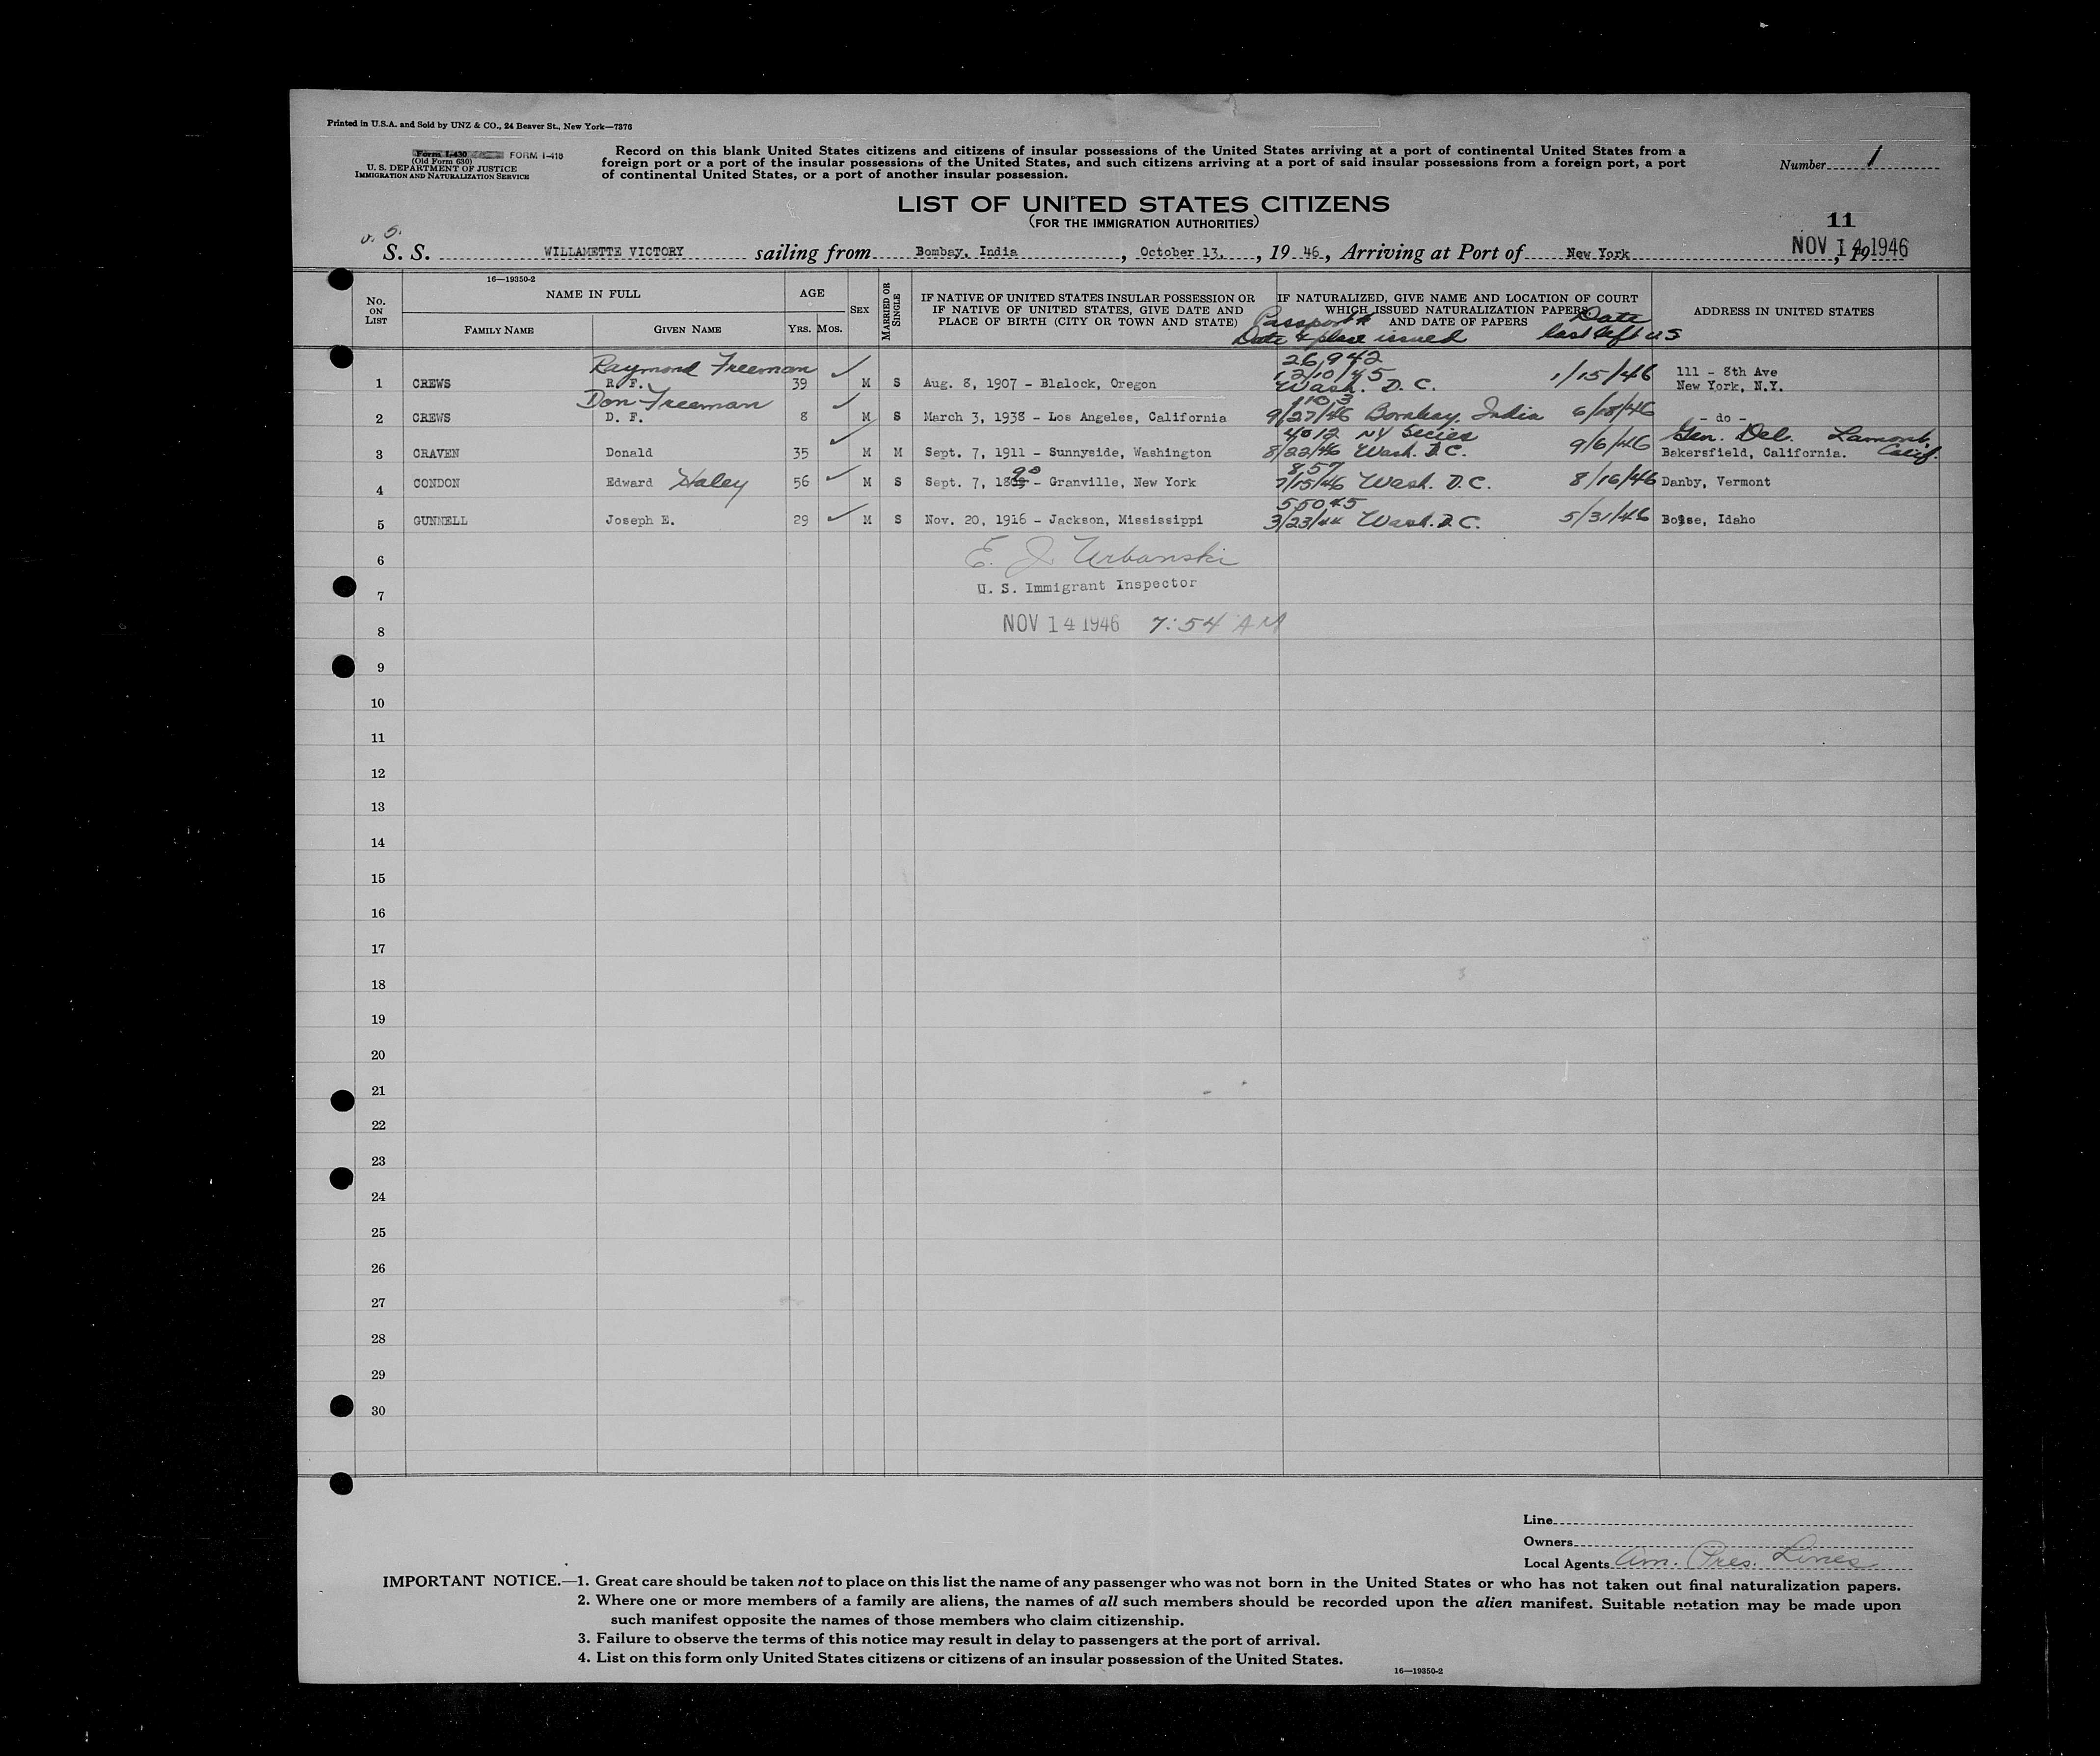 Printed in U.S.A. and Sold by UNZ & CO., 24 Beaver St., New York—7376
Form I-430 FORM I-418
(Old Form 630)
U. S. DEPARTMENT OF JUSTICE
IMMIGRATION AND NATURALIZATION SERVICE
Record on this blank United States citizens and citizens of insular possessions of the United States arriving at a port of continental United States from a
foreign port or a port of the insular possessions of the United States, and such citizens arriving at a port of said insular possessions from a foreign port, a port
of continental United States, or a port of another insular possession.
Number 1
LIST OF UNITED STATES CITIZENS
(FOR THE IMMIGRATION AUTHORITIES)
11
S. S. WILLAMETTE VICTORY sailing from Bombay, India, October 13, 19 46, Arriving at Port of New York NOV 14 1946, 19
16—19350-2
No. ON LIST
NAME IN FULL
FAMILY NAME
GIVEN NAME
AGE
YRS. MOS.
SEX
MARRIED OR SINGLE
IF NATIVE OF UNITED STATES INSULAR POSSESSION OR
IF NATIVE OF UNITED STATES, GIVE DATE AND
PLACE OF BIRTH (CITY OR TOWN AND STATE)
IF NATURALIZED, GIVE NAME AND LOCATION OF COURT
WHICH ISSUED NATURALIZATION PAPERS
AND DATE OF PAPERS
Passport #
Date & place issued
Date
last left US
ADDRESS IN UNITED STATES
Raymond Freeman 26,942
12/10/45
1 CREWS R. F. 39 M S Aug. 8, 1907 - Blalock, Oregon Wash. D. C. 1/15/46 111 - 8th Ave
New York, N.Y.
Don Freeman 1103
2 CREWS D. F. 8 M S March 3, 1938 - Los Angeles, California 9/27/46 Bombay, India - do -
4012 NY Series Gen. Del. Lamont,
3 CRAVEN Donald 35 M M Sept. 7, 1911 - Sunnyside, Washington 8/22/46 Wash. D.C. 9/6/46 Bakersfield, California. Calif.
90 857
4 CONDON Edward Haley 56 M S Sept. 7, 1889 - Granville, New York 7/15/46 Wash. D.C. 8/16/46 Danby, Vermont
55045
5 GUNNELL Joseph E. 29 M S Nov. 20, 1916 - Jackson, Mississippi 3/23/44 Wash. D.C. 5/31/46 Boise, Idaho
E. J. Urbanski
6
U. S. Immigrant Inspector
7
NOV 14 1946 7:54 AM
8
9
10
11
12
13
14
15
16
17
18
19
20
21
22
23
24
25
26
27
28
29
30
Line
Owners
Local Agents Am. Pres. Lines
IMPORTANT NOTICE.—1. Great care should be taken not to place on this list the name of any passenger who was not born in the United States or who has not taken out final naturalization papers.
2. Where one or more members of a family are aliens, the names of all such members should be recorded upon the alien manifest. Suitable notation may be made upon
such manifest opposite the names of those members who claim citizenship.
3. Failure to observe the terms of this notice may result in delay to passengers at the port of arrival.
4. List on this form only United States citizens or citizens of an insular possession of the United States.
16—19350-2